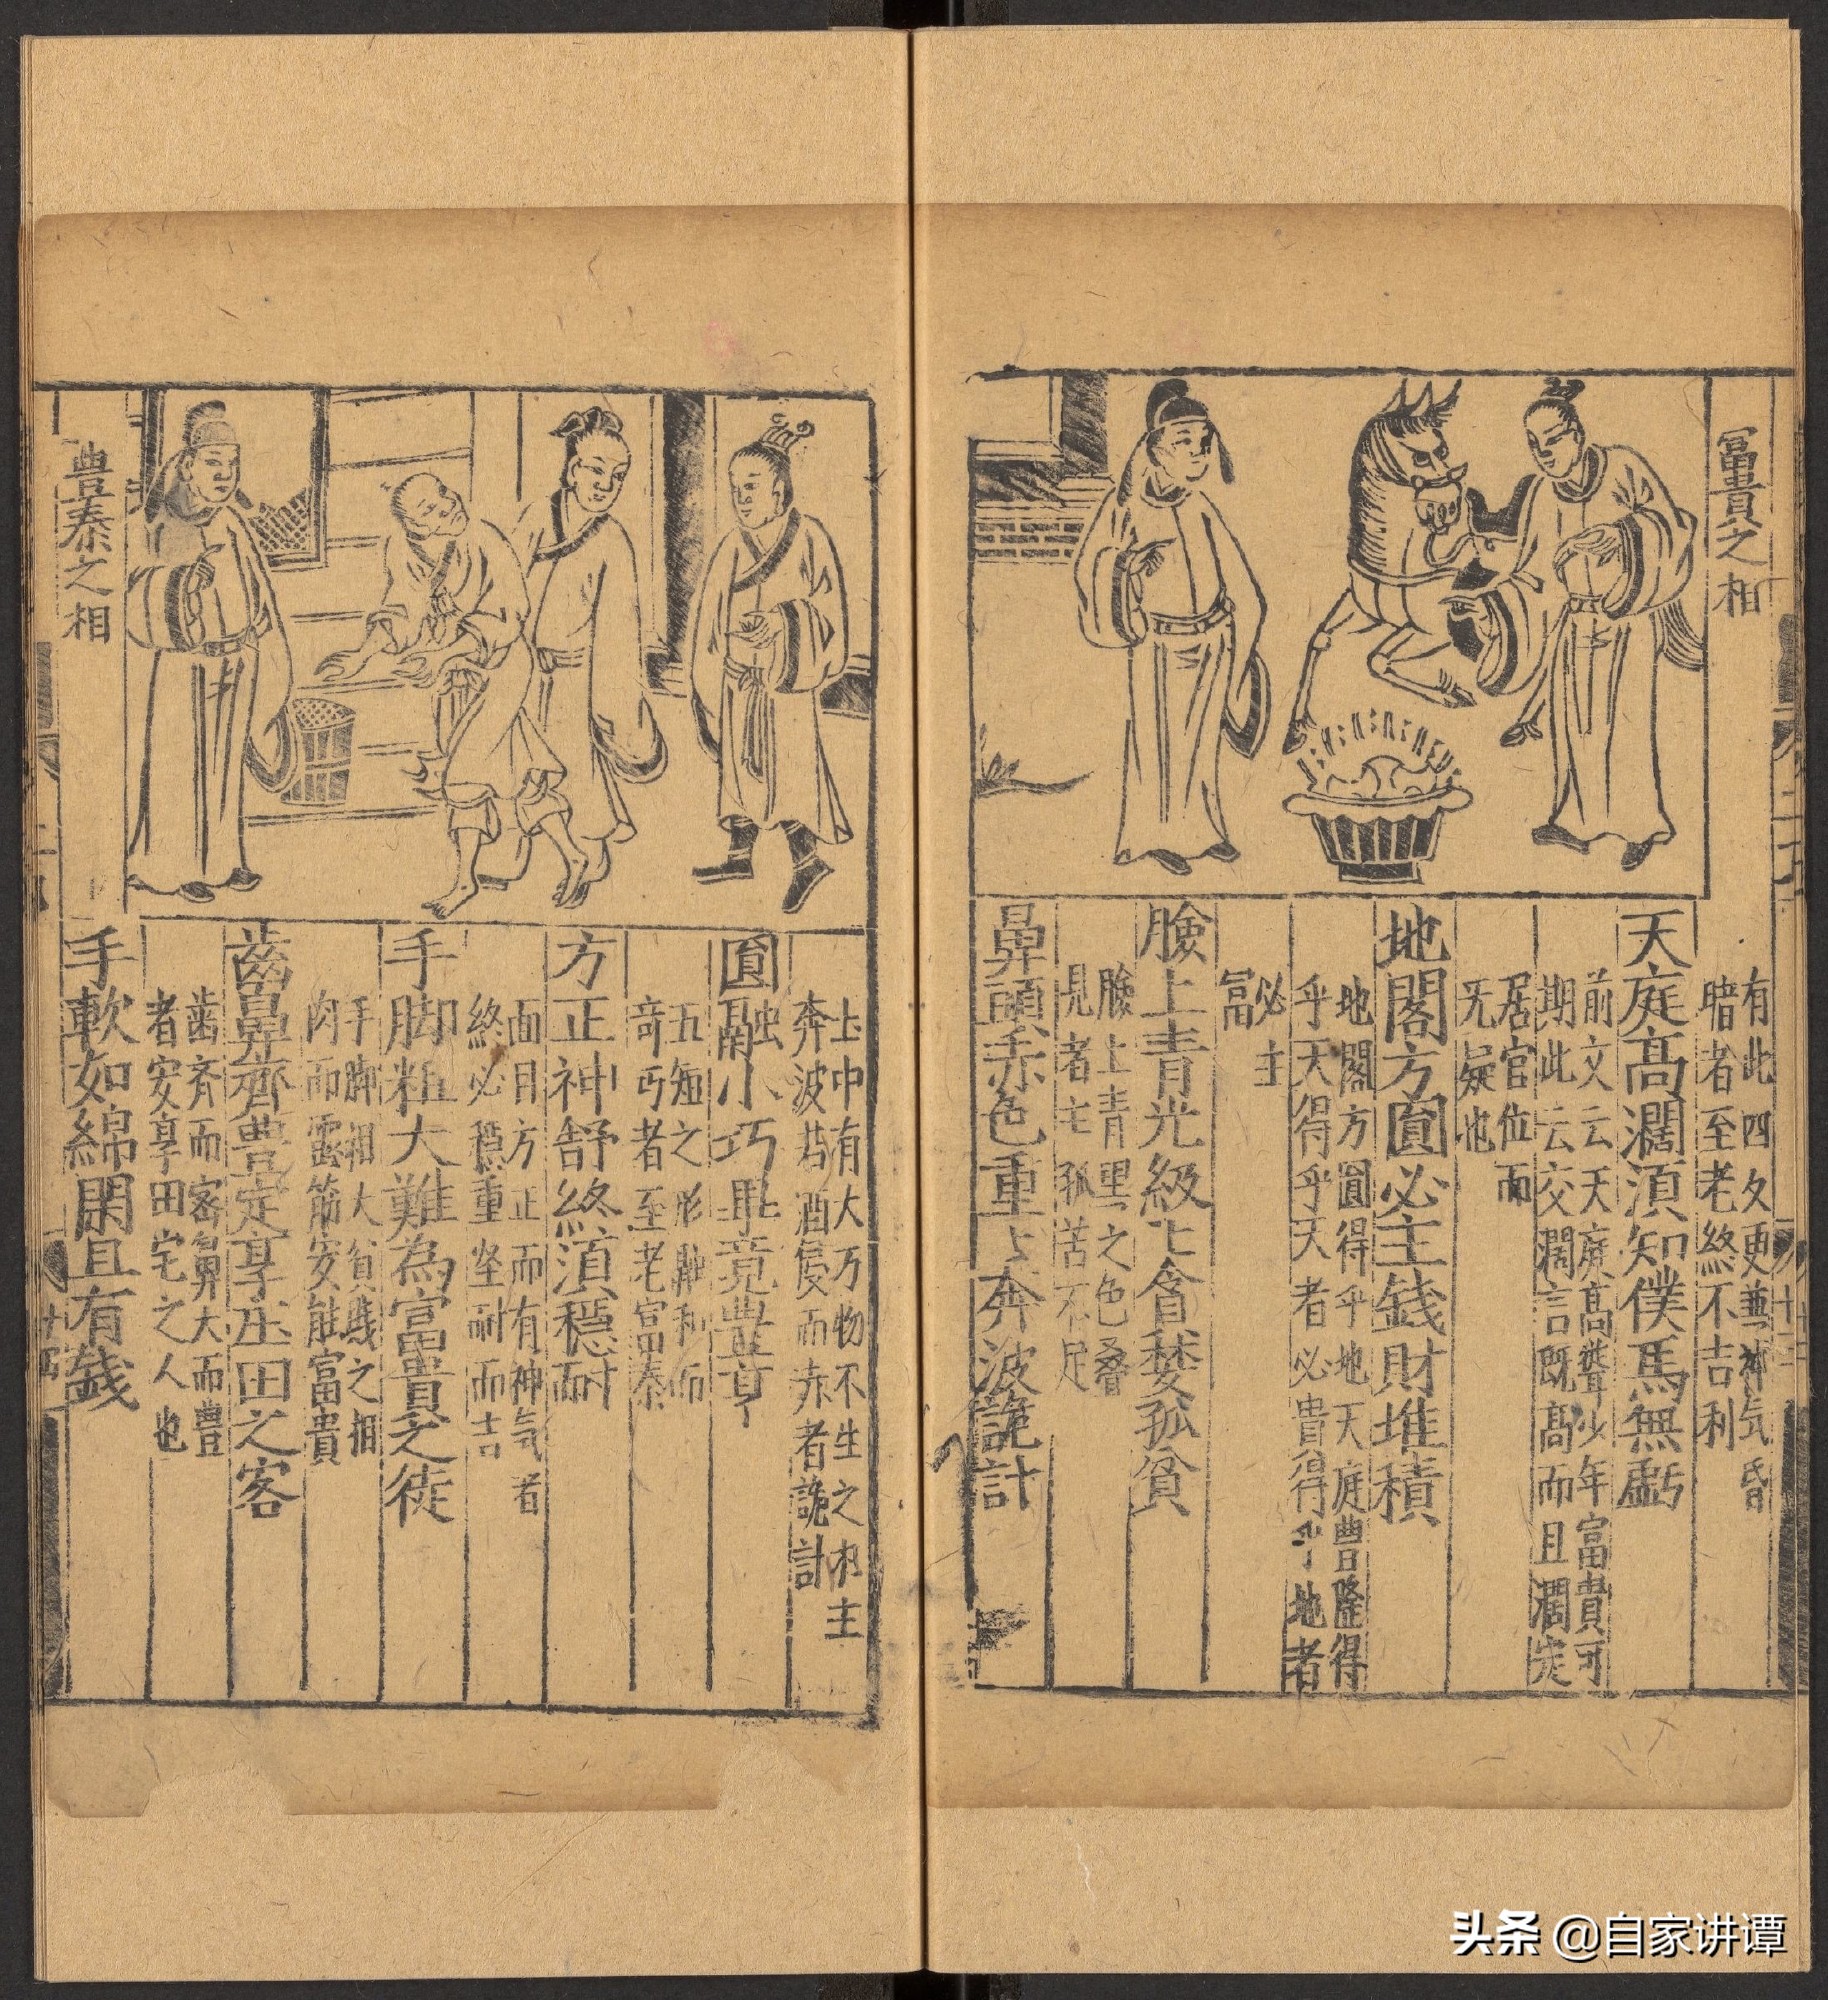 富貴之相
有此四欠更蕪神気昏
暗者至老終不吉利
天庭髙濶湏知僕馬無虧
前文云天庭髙聳少年富貴可
期此云交濶言既髙而且濶定
居官位而
无疑也
地閣方圓必主錢財堆積
地閣方圓得乎地天庭豊隆得
乎天得乎天者必貴得乎地者
必主
冨
臉上青光級〻貪婪孤貧
臉上青黑之色叠
見者主孤苦不足
鼻頭赤色重〻奔波詭計
土中有大万物不生之相主
奔波若酒侵而赤者詭計
圓融小巧畢竟豊亨
五短之形融和而
奇巧者至老富泰
方正神舒終湏穩耐
面目方正而有神気者
終必穩重坚耐而吉
手脚粗大難為富貴之徒
手脚粗大貧賤之相
肉而露筋安能富貴
齒鼻齊豊定享庄田之客
歯齐而密鼻大而豊
者安享田宅之人也
手軟如綿閑且有錢
豊泰之相
头条 @自家讲谭